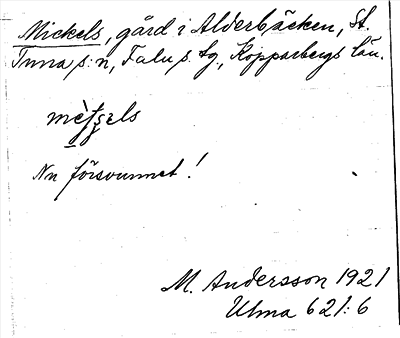 Mickels, gård i Alderbäcken, St.
Tuna s:n, Falu s. tg, Kopparbergs län.
Nu försvunnet!
M. Andersson 1921
Ulma 621:6